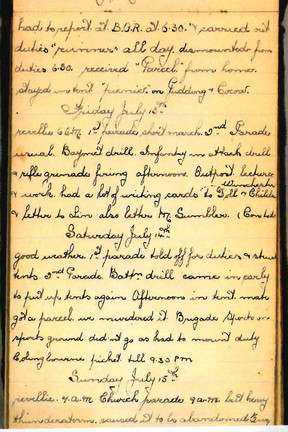 had to report at B.O.R. at 6.30. & carried out
duties "runner" all day. dismounted from
duties 6.30. received "Parcel" from home.
stayed in tent "picnic" on Pudding & Cocoa.
Friday July 13th
reveille 6 a.m. 1st parade short march. 2nd Parade
usual. Bayonet drill. Infantry in attack drill
& rifle grenade firing afternoons. Outpost lecture
& work. had a lot of writing cards to Doll & Childe
Winchester
& letter to Lin also letter Mr Sumbler.
Saturday July 14th
good weather. 1st parade told off for duties & struck
tents. 2nd Parade. Battn. drill came in early
to put up tents again Afternoons in tent mate
got a parcel we murdered it. Brigade Sports on
sports ground did not go as had to mount duty
Codingbourne picket till 9.30 PM
Sunday July 15th
reveille. 7. a.m. Church parade 9 a.m. but heavy
thunderstorm, caused it to be abandoned